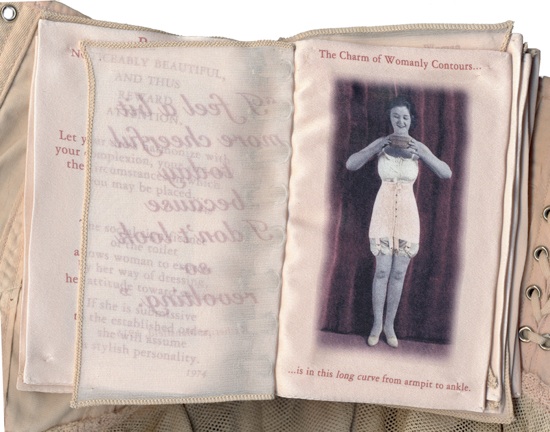 NOTICEABLY BEAUTIFUL,
AND THUS
REWARD
ATTENTION.
Let with
your complexion, your
the circumstances in which
you may be placed
of the toilet
allows woman to
by her way of dressing,
her attitude
If she is submissive
to the established order,
she will assume
a stylish personality.
1974
I feel a bit
more cheerful
today
because
I don't look
so
revolting.
The Charm of Womanly Contours...
...is in this long curve from armpit to ankle.